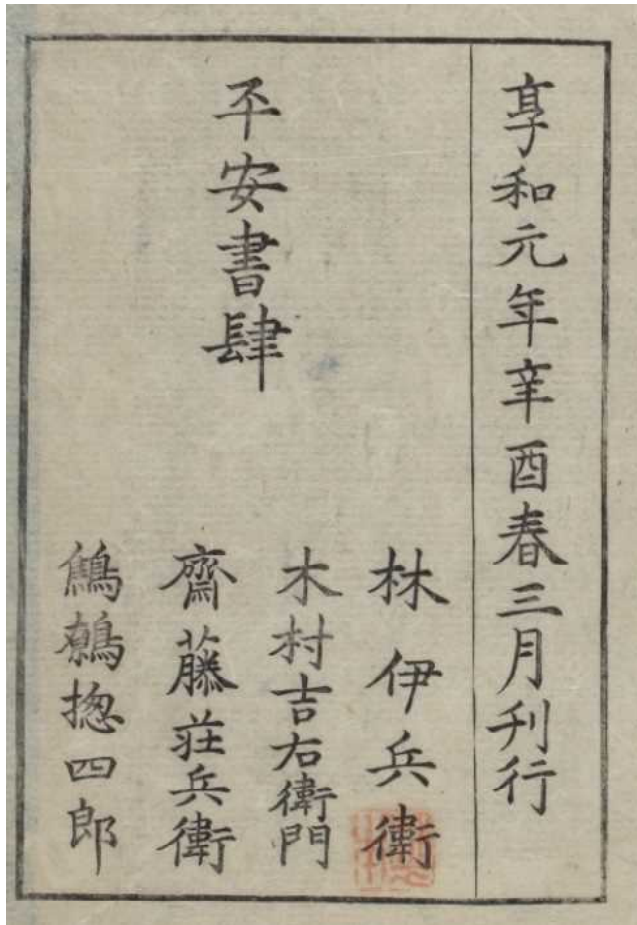 享和元年辛酉春三月刊行
平安書肆
林伊兵衛
木村吉右衛門
齋藤荘兵衛
鷦鷯惣四郎